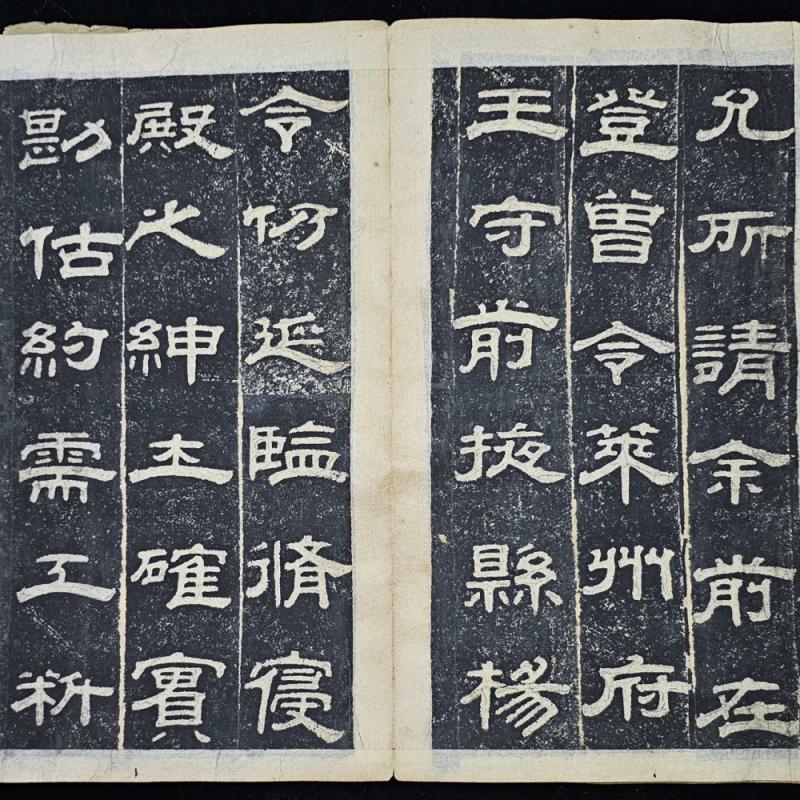 允所請余前在
登曾令萊州府
王守前掖縣楊
令仍延臨脩寢
殿之紳士確實
勘估約需工料